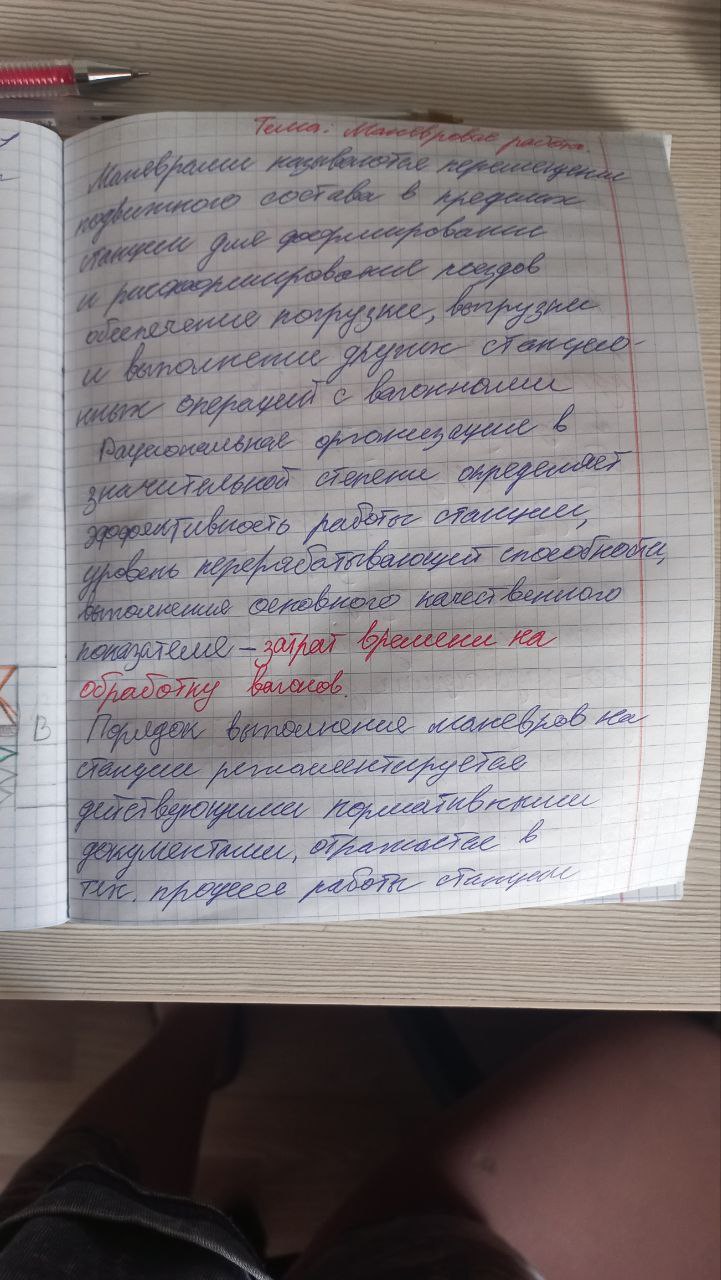 Тема: Маневровая работа.
Маневрами называются перемещения
подвижного состава в пределах
станции для формирования
и расформирования поездов
обеспечения погрузки, выгрузки
и выполнении других станцио-
нных операций с вагонами
Рациональная организация в
значительной степени определяет
эффективность работы станции,
уровень перерабатывающей способности,
выполнения основного качественного
показателя – затрат времени на
обработку вагонов.
Порядок выполнения маневров на
станции регламентируется
действующими нормативными
документами, отражается в
тех. процессе работы станции
В